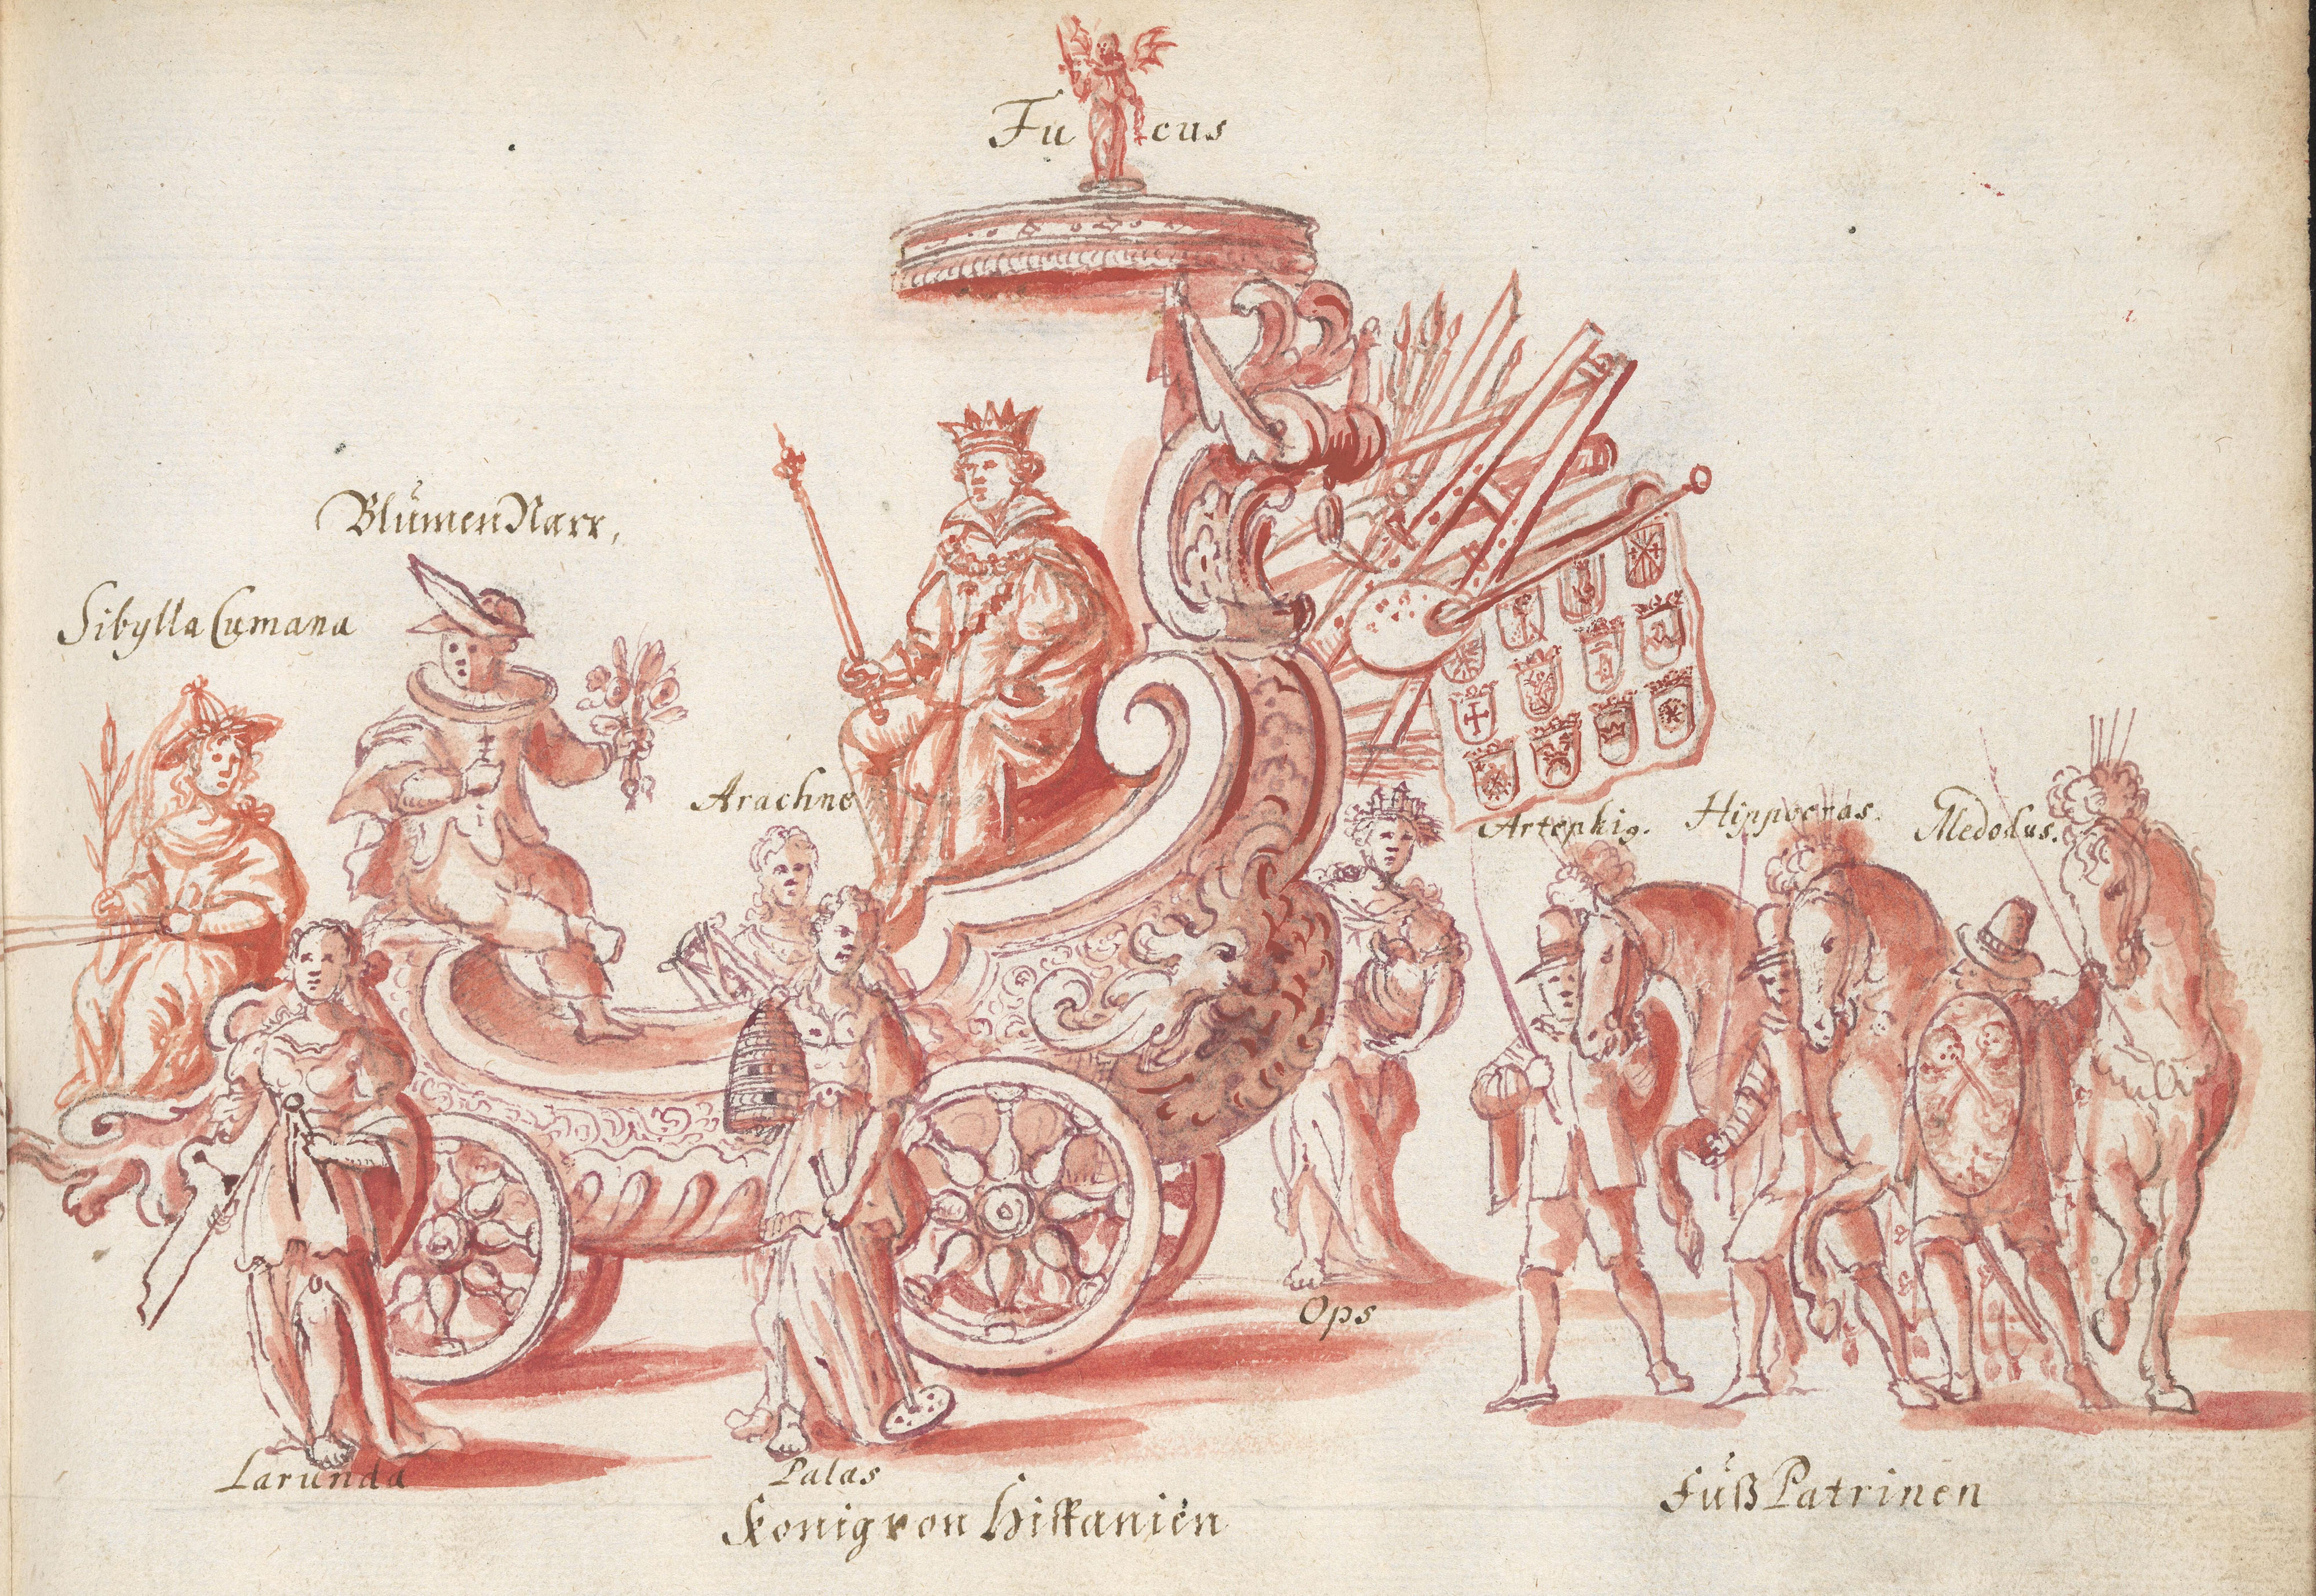 Fu cus
Blümen Narr,
Sibylla Cumana
Arachne
Artephig. Hippocras. Medodus.
Ops
Larunda
Palas
Konig von Hispanien
Füß Patrinen